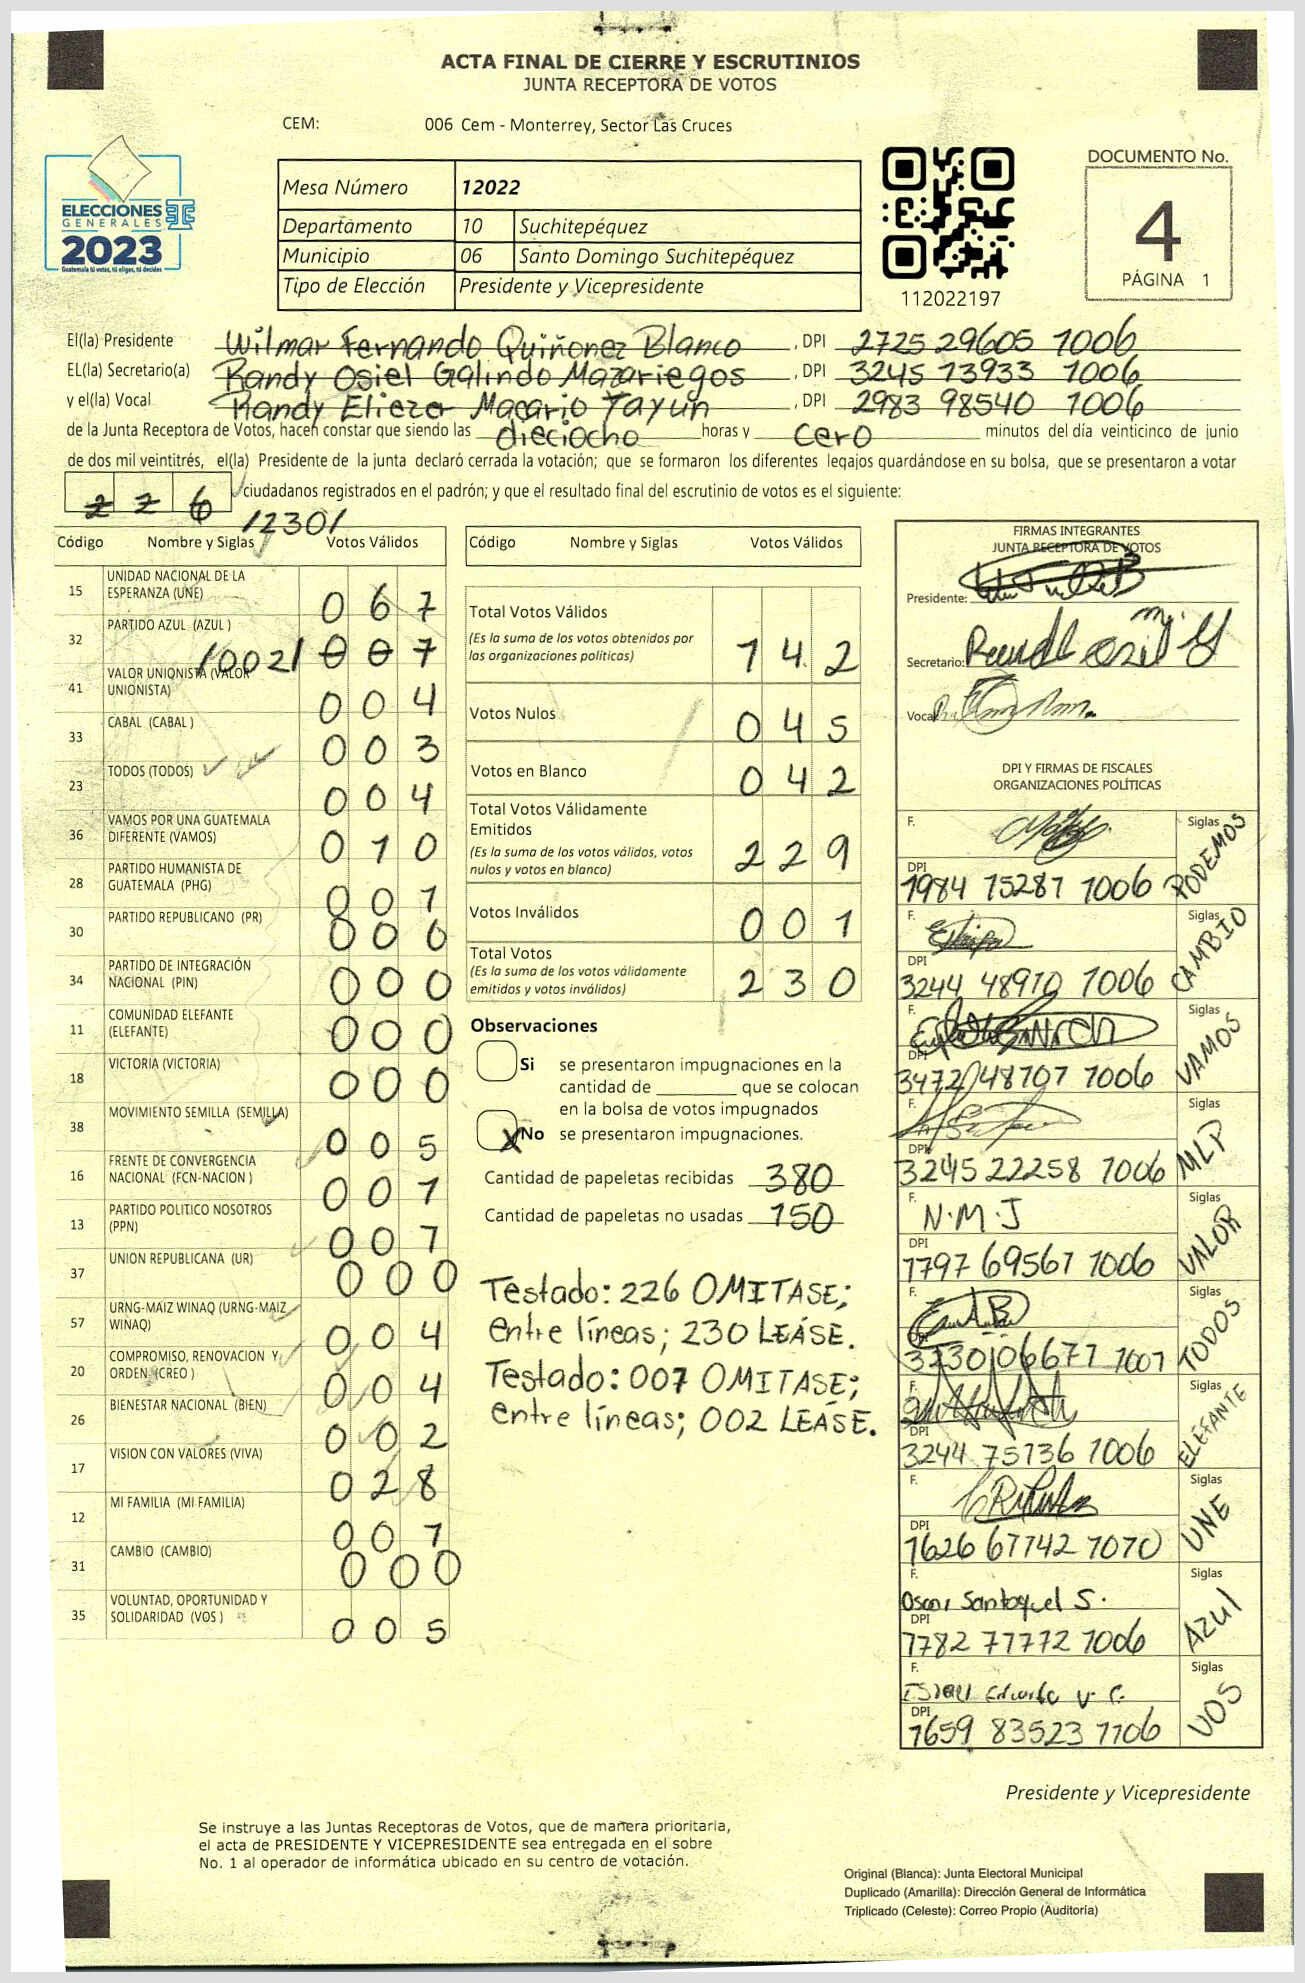 ACTA FINAL DE CIERRE Y ESCRUTINIOS
JUNTA RECEPTORA DE VOTOS
CEM: 006 Cem - Monterrey, Sector Las Cruces
ELECCIONES
GENERALES
2023
Guatemala tú votas, tú eliges, tú decides
Mesa Número 12022
Departamento 10 Suchitepéquez
Municipio 06 Santo Domingo Suchitepéquez
Tipo de Elección Presidente y Vicepresidente
112022197
DOCUMENTO No.
4
PÁGINA 1
El(la) Presidente Wilmar Fernando Quiñonez Blanco, DPI 2725 29605 1006
EL(la) Secretario(a) Randy Osiel Galindo Mazariegos, DPI 3245 13933 1006
y el(la) Vocal Randy Eliezer Macario Tayun, DPI 2983 98540 1006
de la Junta Receptora de Votos, hacen constar que siendo las dieciocho horas y cero minutos del día veinticinco de junio
de dos mil veintitrés, el(la) Presidente de la junta declaró cerrada la votación; que se formaron los diferentes legajos guardándose en su bolsa, que se presentaron a votar
226 ciudadanos registrados en el padrón; y que el resultado final del escrutinio de votos es el siguiente:
/230/
Código Nombre y Siglas Votos Válidos
15 UNIDAD NACIONAL DE LA ESPERANZA (UNE) 067
32 PARTIDO AZUL (AZUL ) /002/ 007
41 VALOR UNIONISTA (VALOR UNIONISTA) 004
33 CABAL (CABAL ) 003
23 TODOS (TODOS) 004
36 VAMOS POR UNA GUATEMALA DIFERENTE (VAMOS) 010
28 PARTIDO HUMANISTA DE GUATEMALA (PHG) 001
30 PARTIDO REPUBLICANO (PR) 000
34 PARTIDO DE INTEGRACIÓN NACIONAL (PIN) 000
11 COMUNIDAD ELEFANTE (ELEFANTE) 000
18 VICTORIA (VICTORIA) 000
38 MOVIMIENTO SEMILLA (SEMILLA) 005
16 FRENTE DE CONVERGENCIA NACIONAL (FCN-NACION ) 001
13 PARTIDO POLITICO NOSOTROS (PPN) 001
37 UNION REPUBLICANA (UR) 000
57 URNG-MAIZ WINAQ (URNG-MAIZ WINAQ) 004
20 COMPROMISO, RENOVACION Y ORDEN (CREO ) 004
26 BIENESTAR NACIONAL (BIEN) 002
17 VISION CON VALORES (VIVA) 028
12 MI FAMILIA (MI FAMILIA) 001
31 CAMBIO (CAMBIO) 000
35 VOLUNTAD, OPORTUNIDAD Y SOLIDARIDAD (VOS ) 005
Código Nombre y Siglas Votos Válidos
Total Votos Válidos 142
(Es la suma de los votos obtenidos por
las organizaciones politicas)
Votos Nulos 045
Votos en Blanco 042
Total Votos Válidamente
Emitidos 229
(Es la suma de los votos válidos, votos
nulos y votos en blanco)
Votos Inválidos 001
Total Votos 230
(Es la suma de los votos válidamente
emitidos y votos inválidos)
Observaciones
Si se presentaron impugnaciones en la
cantidad de ________ que se colocan
en la bolsa de votos impugnados
X No se presentaron impugnaciones.
Cantidad de papeletas recibidas 380
Cantidad de papeletas no usadas 150
Testado: 226 OMITASE;
entre líneas; 230 LEÁSE.
Testado: 007 OMITASE;
entre líneas; 002 LEÁSE.
FIRMAS INTEGRANTES
JUNTA RECEPTORA DE VOTOS
Presidente:
Secretario:
Vocal
DPI Y FIRMAS DE FISCALES
ORGANIZACIONES POLÍTICAS
F. Siglas PODEMOS
DPI 1984 15287 1006
F. Siglas CAMBIO
DPI 3244 48910 1006
F. Siglas VAMOS
DPI 3472 48707 1006
F. Siglas MLP
DPI 3245 22258 1006
F. N.M.J Siglas VALOR
DPI 1797 69567 1006
F. Siglas TODOS
DPI 3230 06677 1007
F. Siglas ELEFANTE
DPI 3244 75136 1006
F. Siglas UNE
DPI 1626 67742 1010
F. Oscar Santoquel S. Siglas AZUL
DPI 1782 77772 1006
F. Israel Eduardo V. C. Siglas VOS
DPI 1659 83523 1106
Presidente y Vicepresidente
Se instruye a las Juntas Receptoras de Votos, que de manera prioritaria,
el acta de PRESIDENTE Y VICEPRESIDENTE sea entregada en el sobre
No. 1 al operador de informática ubicado en su centro de votación.
Original (Blanca): Junta Electoral Municipal
Duplicado (Amarilla): Dirección General de Informática
Triplicado (Celeste): Correo Propio (Auditoría)